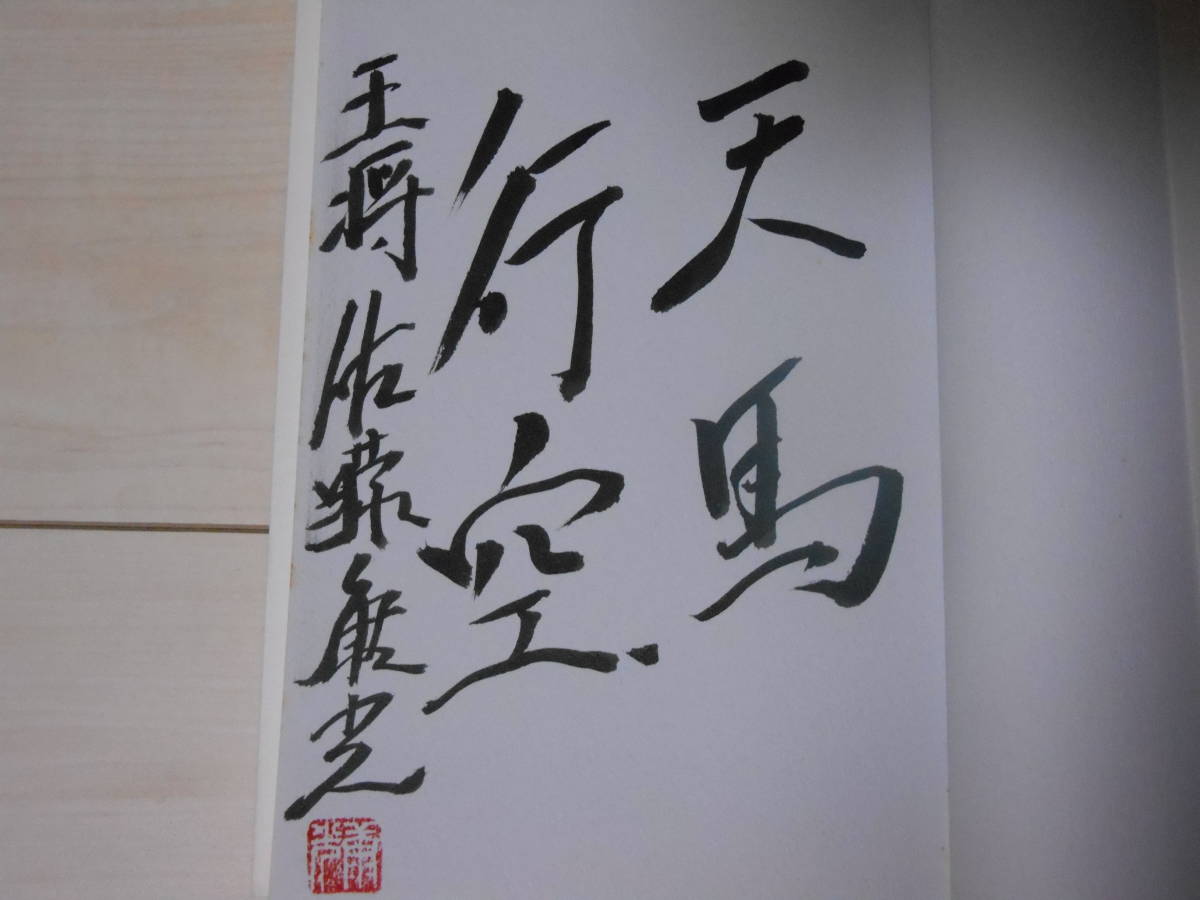 天馬
行空
王将 佐藤康光
康光